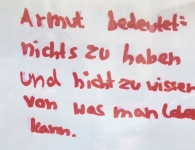 Armut bedeutet:
nichts zu haben
und nicht zu wissen
von was man leben
kann.